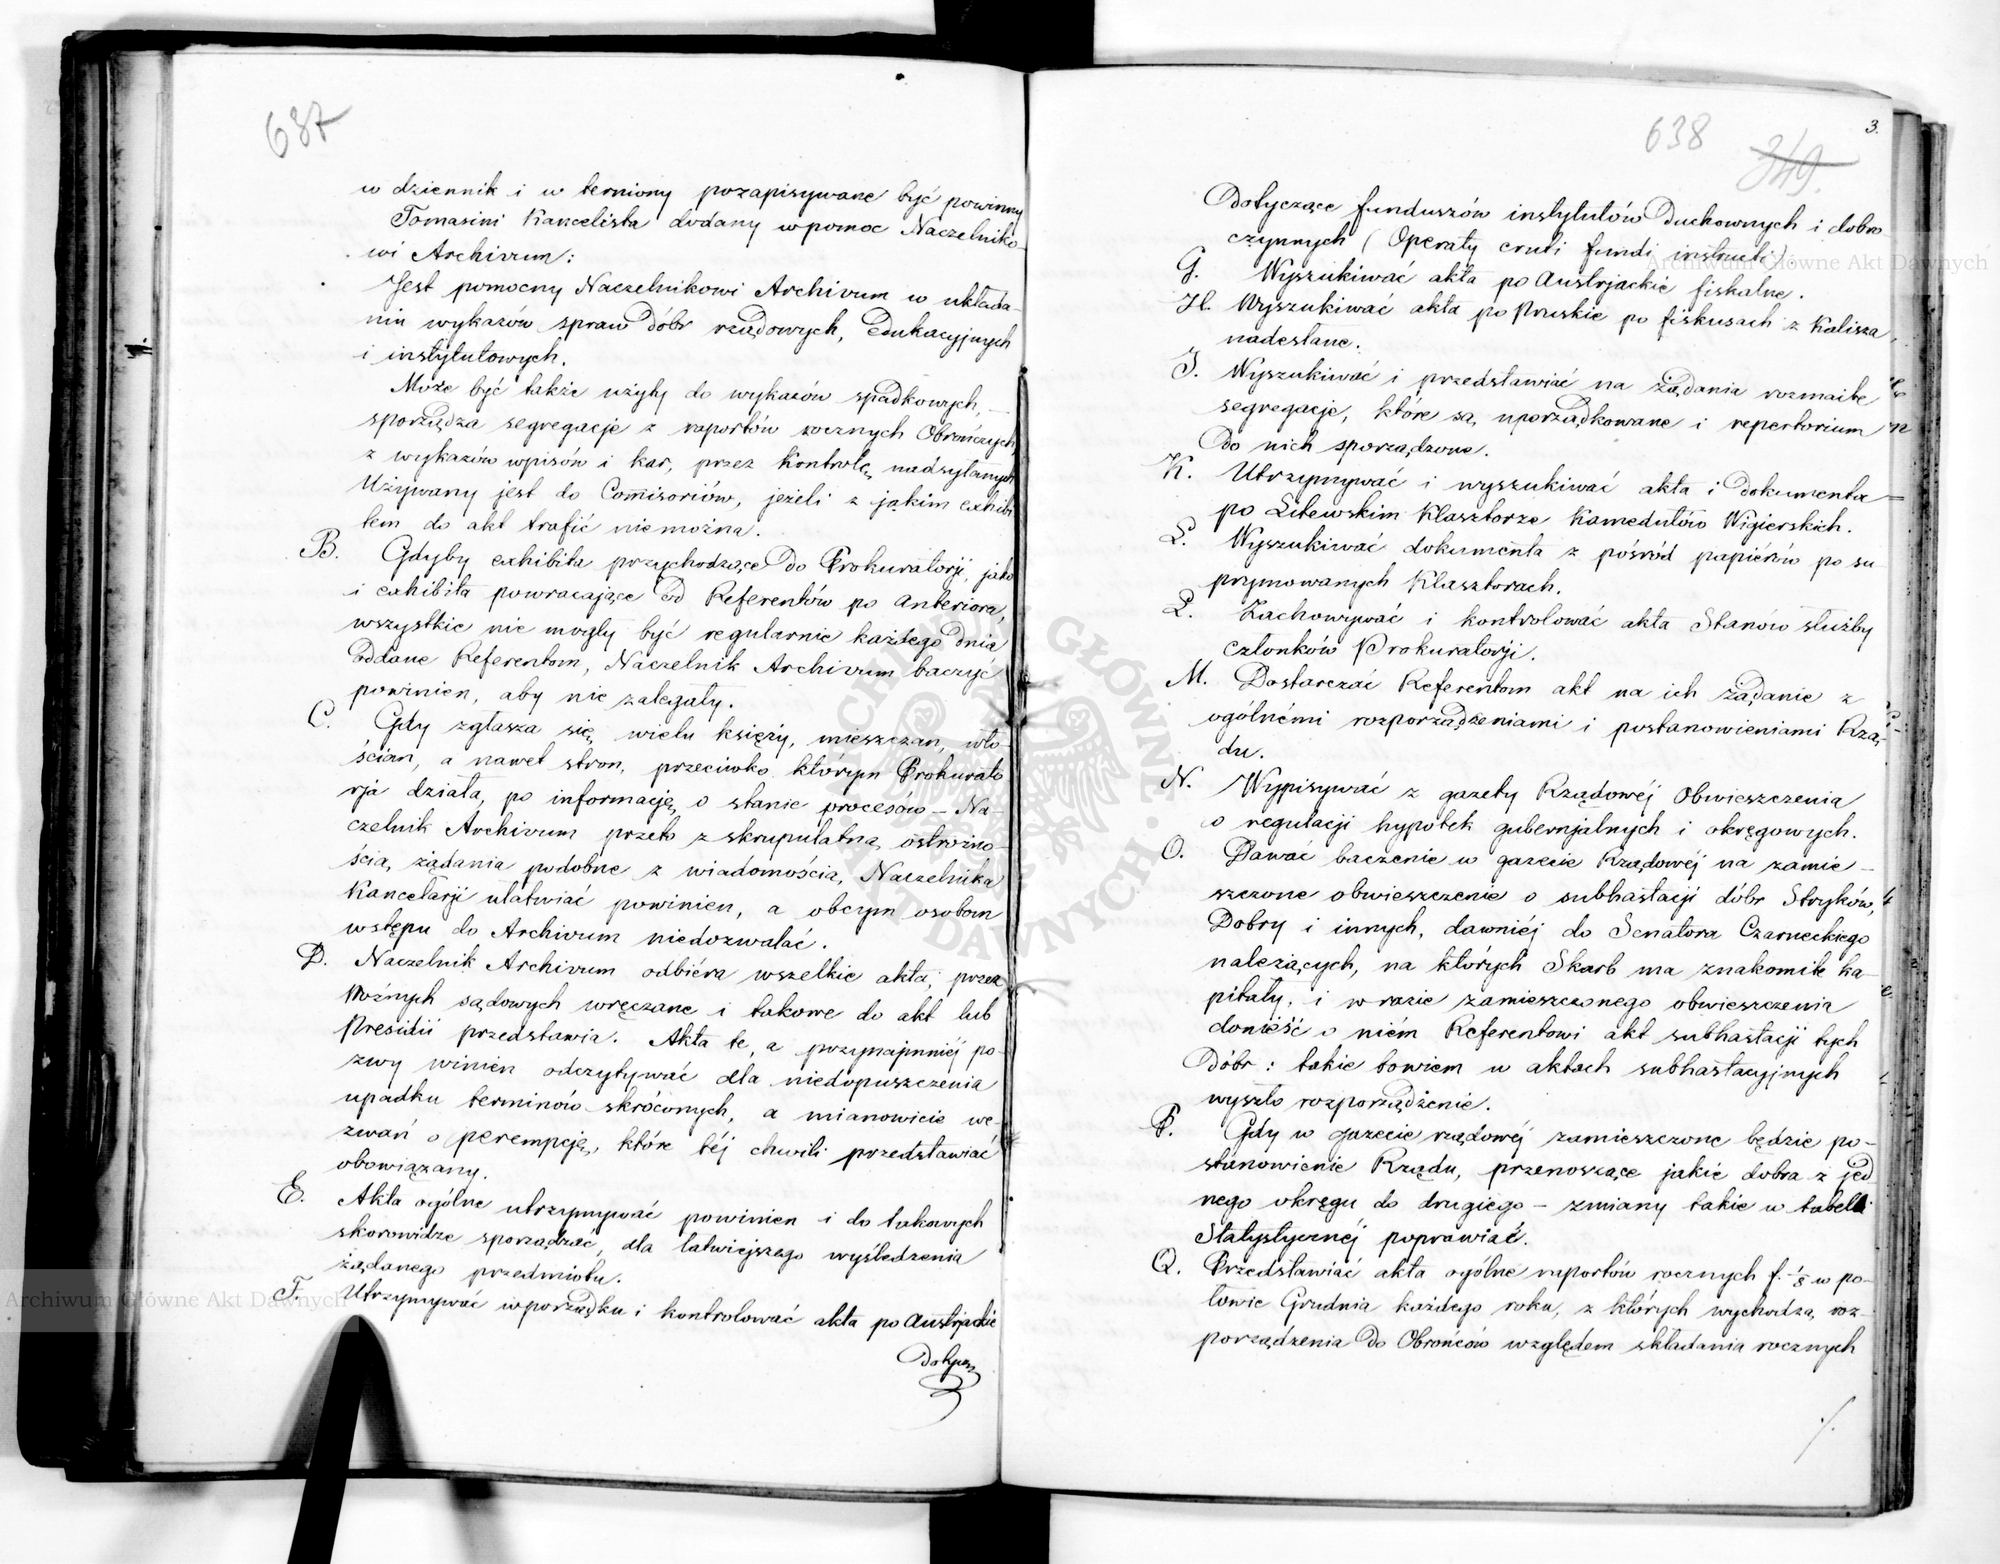 637
w dziennik i w terminy pozapisywane być powinny
Tomasini Kancelista dodany w pomoc Naczelniko-
wi Archivum:
Jest pomocny Naczelnikowi Archivum w układa-
niu wykazów spraw dóbr rządowych, Edukacyjnych
i instytutowych.
Może być także użyty do wykazów spadkowych,
sporządza segregacje z raportów rocznych Obrończych,
z wykazów wpisów i kar, przez Kontrolę nadsyłanych
Używany jest do Commisoriów, jeżeli z jakim exhibi
tem do akt trafić niemożna.
B. Gdyby exhibita przychodzące do Prokuratorji, jako
i exhibita powracające od Referentów po anteriora,
wszystkie nie mogły być regularnie każdego dnia
oddane Referentom, Naczelnik Archivum baczyć
powinien, aby nie zalegały.
C. Gdy zgłasza się wielu księży, mieszczan, wło-
ścian, a nawet stron, przeciwko którym Prokurato
rja działa, po informacją o stanie procesów – Na-
czelnik Archivum przeto z skrupulatną ostrożno-
ścią, żądania podobne z wiadomością Naczelnika
Kancelarji ułatwiać powinien, a obcym osobom
wstępu do Archivum niedozwalać.
D. Naczelnik Archivum odbiéra wszelkie akta, przez
Woźnych sądowych wręczane i takowe do akt lub
Presidii przedstawia. Akta te, a przynajmniéj po-
zwy winien odczytywać dla niedopuszczenia
upadku terminów skróconych, a mianowicie we-
zwań o perempcją, które téj chwili przedstawiać
obowiązany.
E. Akta ogólne utrzymywać powinien i do takowych
skorowidze sporządzać, dla łatwiejszego wyśledzenia
żądanego przedmiotu.
F. Utrzymywać w porządku i kontrolować akta po Austrjackie
638
349.
3.
Dotyczące funduszów instytutów Duchownych i dobro
czynnych (Operaty cruti fundi instructi).
G. Wyszukiwać akta po Austrjackie fiskalne.
H. Wyszukiwać akta po Pruskie po fiskusach z Kalisza
nadesłane.
J. Wyszukiwać i przedstawiać na żądania rozmaite
segregacje, które są uporządkowane i repertorium
do nich sporządzone.
K. Utrzymywać i wyszukiwać akta i dokumenta
po Litewskim Klasztorze Kamedułów Wigierskich.
L. Wyszukiwać dokumenta z pośród papiérów po su
prymowanych Klasztorach.
Ł. Zachowywać i kontrolować akta Stanów służby
członków Prokuratorji.
M. Dostarczać Referentom akt na ich żądanie z
ogólnémi rozporządzeniami i postanowieniami Rzą-
du.
N. Wypisywać z gazety Rządowéj Obwieszczenia
o regulacji hypotek gubernjalnych i okręgowych.
O. Dawać baczenie w gazecie Rządowéj na zamie-
szczone obwieszczenie o subhastacji dóbr Stryków,
Dobry i innych, dawniéj do Senatora Czarneckiego
należących, na których Skarb ma znakomite ka-
pitały, i w razie zamieszczonego obwieszczenia
donieść o niém Referentowi akt subhastacji tych
Dóbr: takie bowiem w aktach subhastacyjnych
wyszło rozporządzenie.
P. Gdy w gazecie rządowéj zamieszczone będzie po-
stanowienie Rządu, przenoszące jakie dobra z jed
nego okręgu do drugiego – zmiany takie w tabelli
Statystycznéj poprawiać.
Q. Przedstawiać akta ogólne raportów rocznych f. 1/8 w po-
łowie Grudnia każdego roku, z których wychodzą roz-
porządzenia do Obrońców względem składania rocznych
./.
Archiwum Główne Akt Dawnych
Archiwum Główne Akt Dawnych
ARCHIWUM GŁÓWNE AKT DAWNYCH